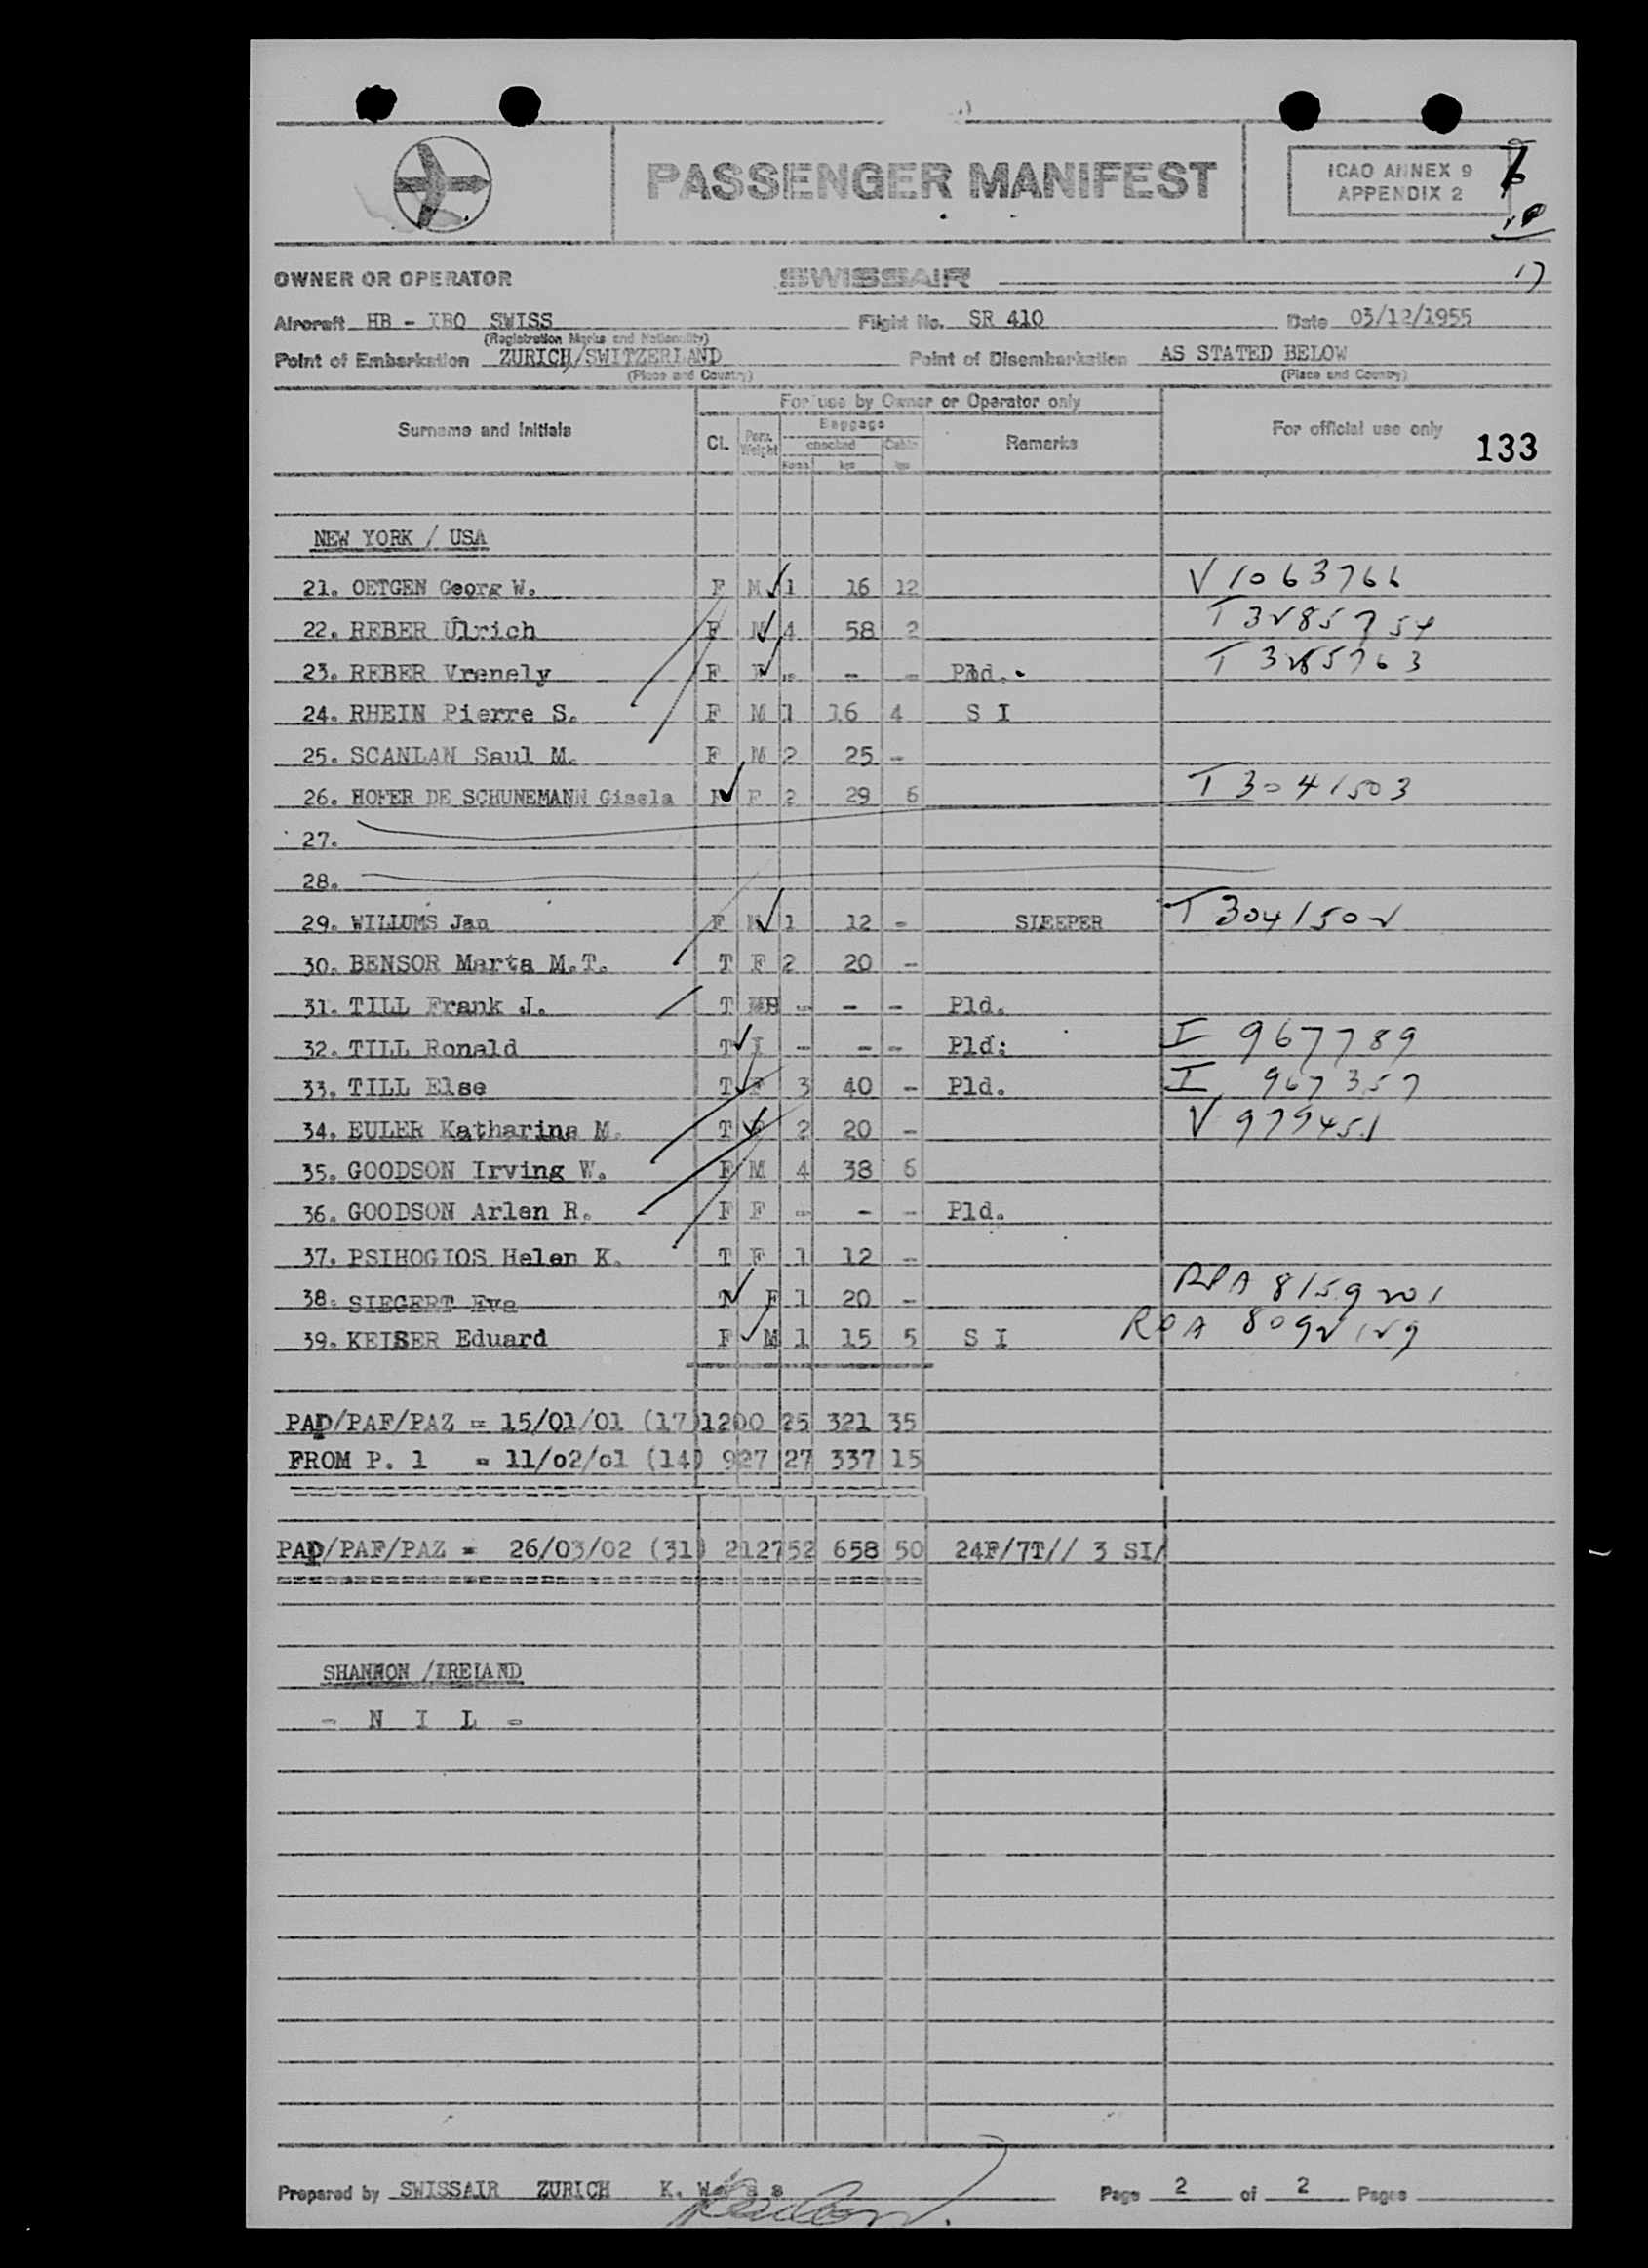 PASSENGER MANIFEST
ICAO ANNEX 9
APPENDIX 2
OWNER OR OPERATOR SWISSAIR
Aircraft HB - IBO SWISS Flight No. SR 410 Date 03/12/1955
(Registration Marks and Nationality)
Point of Embarkation ZURICH/SWITZERLAND Point of Disembarkation AS STATED BELOW
(Place and Country) (Place and Country)
For use by Owner or Operator only
Surname and Initials Cl. Pers. Weight Baggage checked Cabin Remarks For official use only 133
kgs kgs
NEW YORK / USA
21. OETGEN Georg W. F M 1 16 12 V 1063766
22. REBER Ulrich F M 4 58 2 T 3285754
23. REBER Vrenely F F - - - Pld. T 3285763
24. RHEIN Pierre S. F M 1 16 4 S I
25. SCANLAN Saul M. F M 2 25 -
26. HOFER DE SCHUNEMANN Gisela F F 2 29 6 T 3041503
27.
28.
29. WILLUMS Jan F M 1 12 - SLEEPER T 3041502
30. BENSOR Marta M.T. T F 2 20 -
31. TILL Frank J. T - - - Pld.
32. TILL Ronald T I - - - Pld: I 967789
33. TILL Else T F 3 40 - Pld. I 967357
34. EULER Katharina M. T F 2 20 - V 979451
35. GOODSON Irving W. F M 4 38 6
36. GOODSON Arlen R. F F - - - Pld.
37. PSIHOGIOS Helen K. T F 1 12 -
38. SIEGERT Eva F 1 20 - RPA 8159201
39. KEISER Eduard F M 1 15 5 S I RPA 8092129
PAD/PAF/PAZ = 15/01/01 (17) 1200 25 321 35
FROM P. 1 = 11/o2/o1 (14) 927 27 337 15
PAD/PAF/PAZ = 26/03/02 (31) 2127 52 658 50 24F/7T// 3 SI/
SHANNON /IRELAND
- N I L -
Prepared by SWISSAIR ZURICH K. Page 2 of 2 Pages